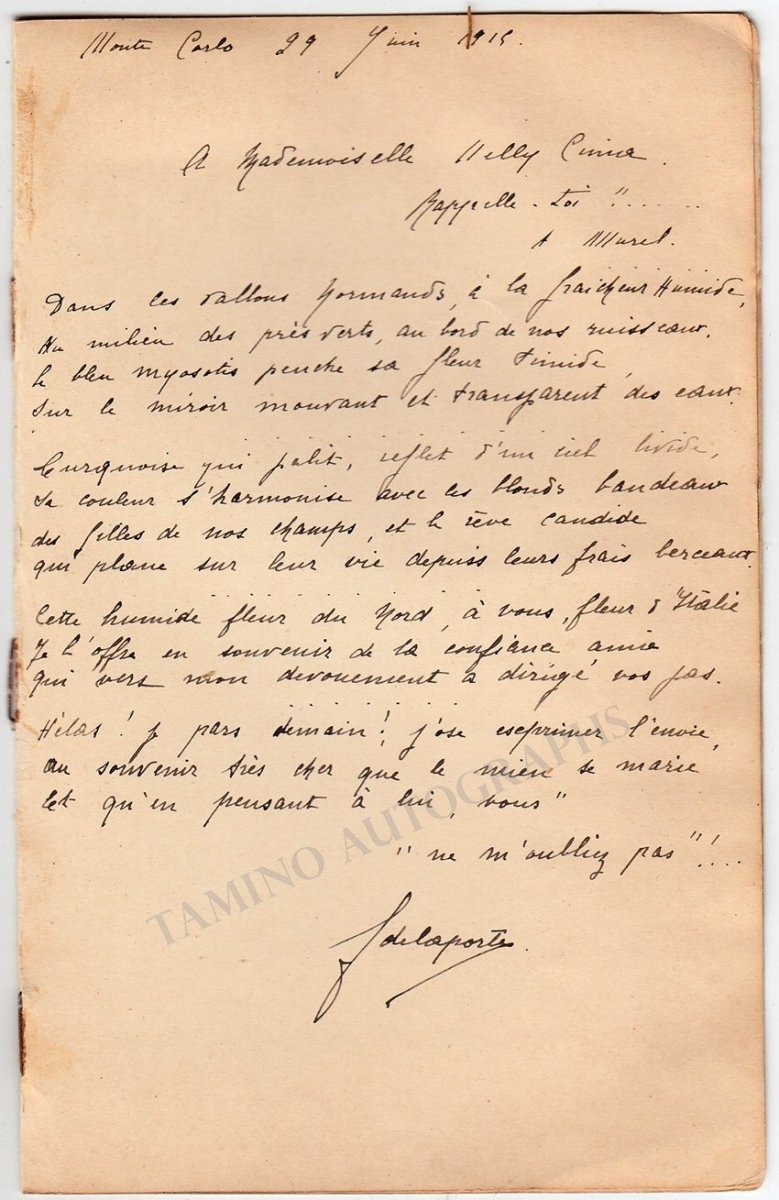 Monte Carlo 29 Juin 1915.
A Mademoiselle Nelly Cinna.
Rappelle-toi "......
A Muret.
Dans les vallons Normands, à la fraicheur Humide,
Au milieu des près verts, au bord de nos ruisseaux,
le bleu myosotis penche sa fleur timide,
Sur le miroir mouvant et transparent des eaux.
Turquoise qui palit, reflet d'un ciel livide,
sa couleur s'harmonise avec les blonds bandeaux
des filles de nos champs, et le rêve candide
qui plane sur leur vie depuis leurs frais berceaux.
Cette humide fleur du Nord, à vous, fleur d'Italie
Je l'offre en souvenir de la confiance amie
qui vers mon dévouement a dirigé vos pas.
Hélas! je pars demain! j'ose exprimer l'envie,
au souvenir très cher que le mien se marie
et qu'en pensant à lui, vous"
"ne m'oubliez pas"!...
J delaporte
TAMINO AUTOGRAPHS